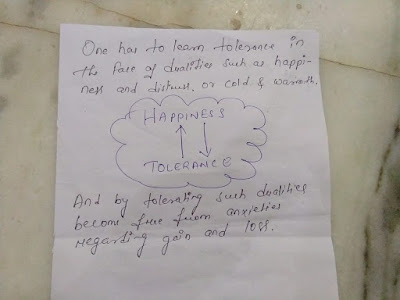 One has to learn tolerance in
the face of dualities such as happi-
ness and distress, or cold & warmth.
HAPPINESS
TOLERANCE
And by tolerating such dualities
become free from anxieties
regarding gain and loss.